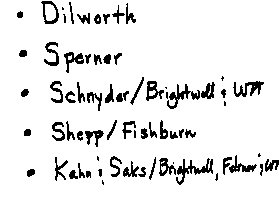 • Dilworth
• Sperner
• Schnyder/Brightwell & WTT
• Shepp/Fishburn
• Kahn & Saks/Brightwell, Felsner & WTT